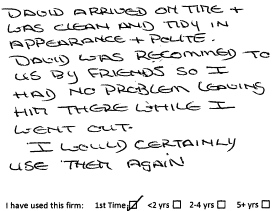 DAVID ARRIVED ON TIME +
WAS CLEAN AND TIDY IN
APPEARANCE + POLITE.
DAVID WAS RECOMMED TO
US BY FRIENDS SO I
HAD NO PROBLEM LEAVING
HIM THERE WHILE I
WENT OUT.
I WOULD CERTAINLY
USE THEM AGAIN
I have used this firm: 1st Time ☑ <2 yrs ☐ 2-4 yrs ☐ 5+ yrs ☐